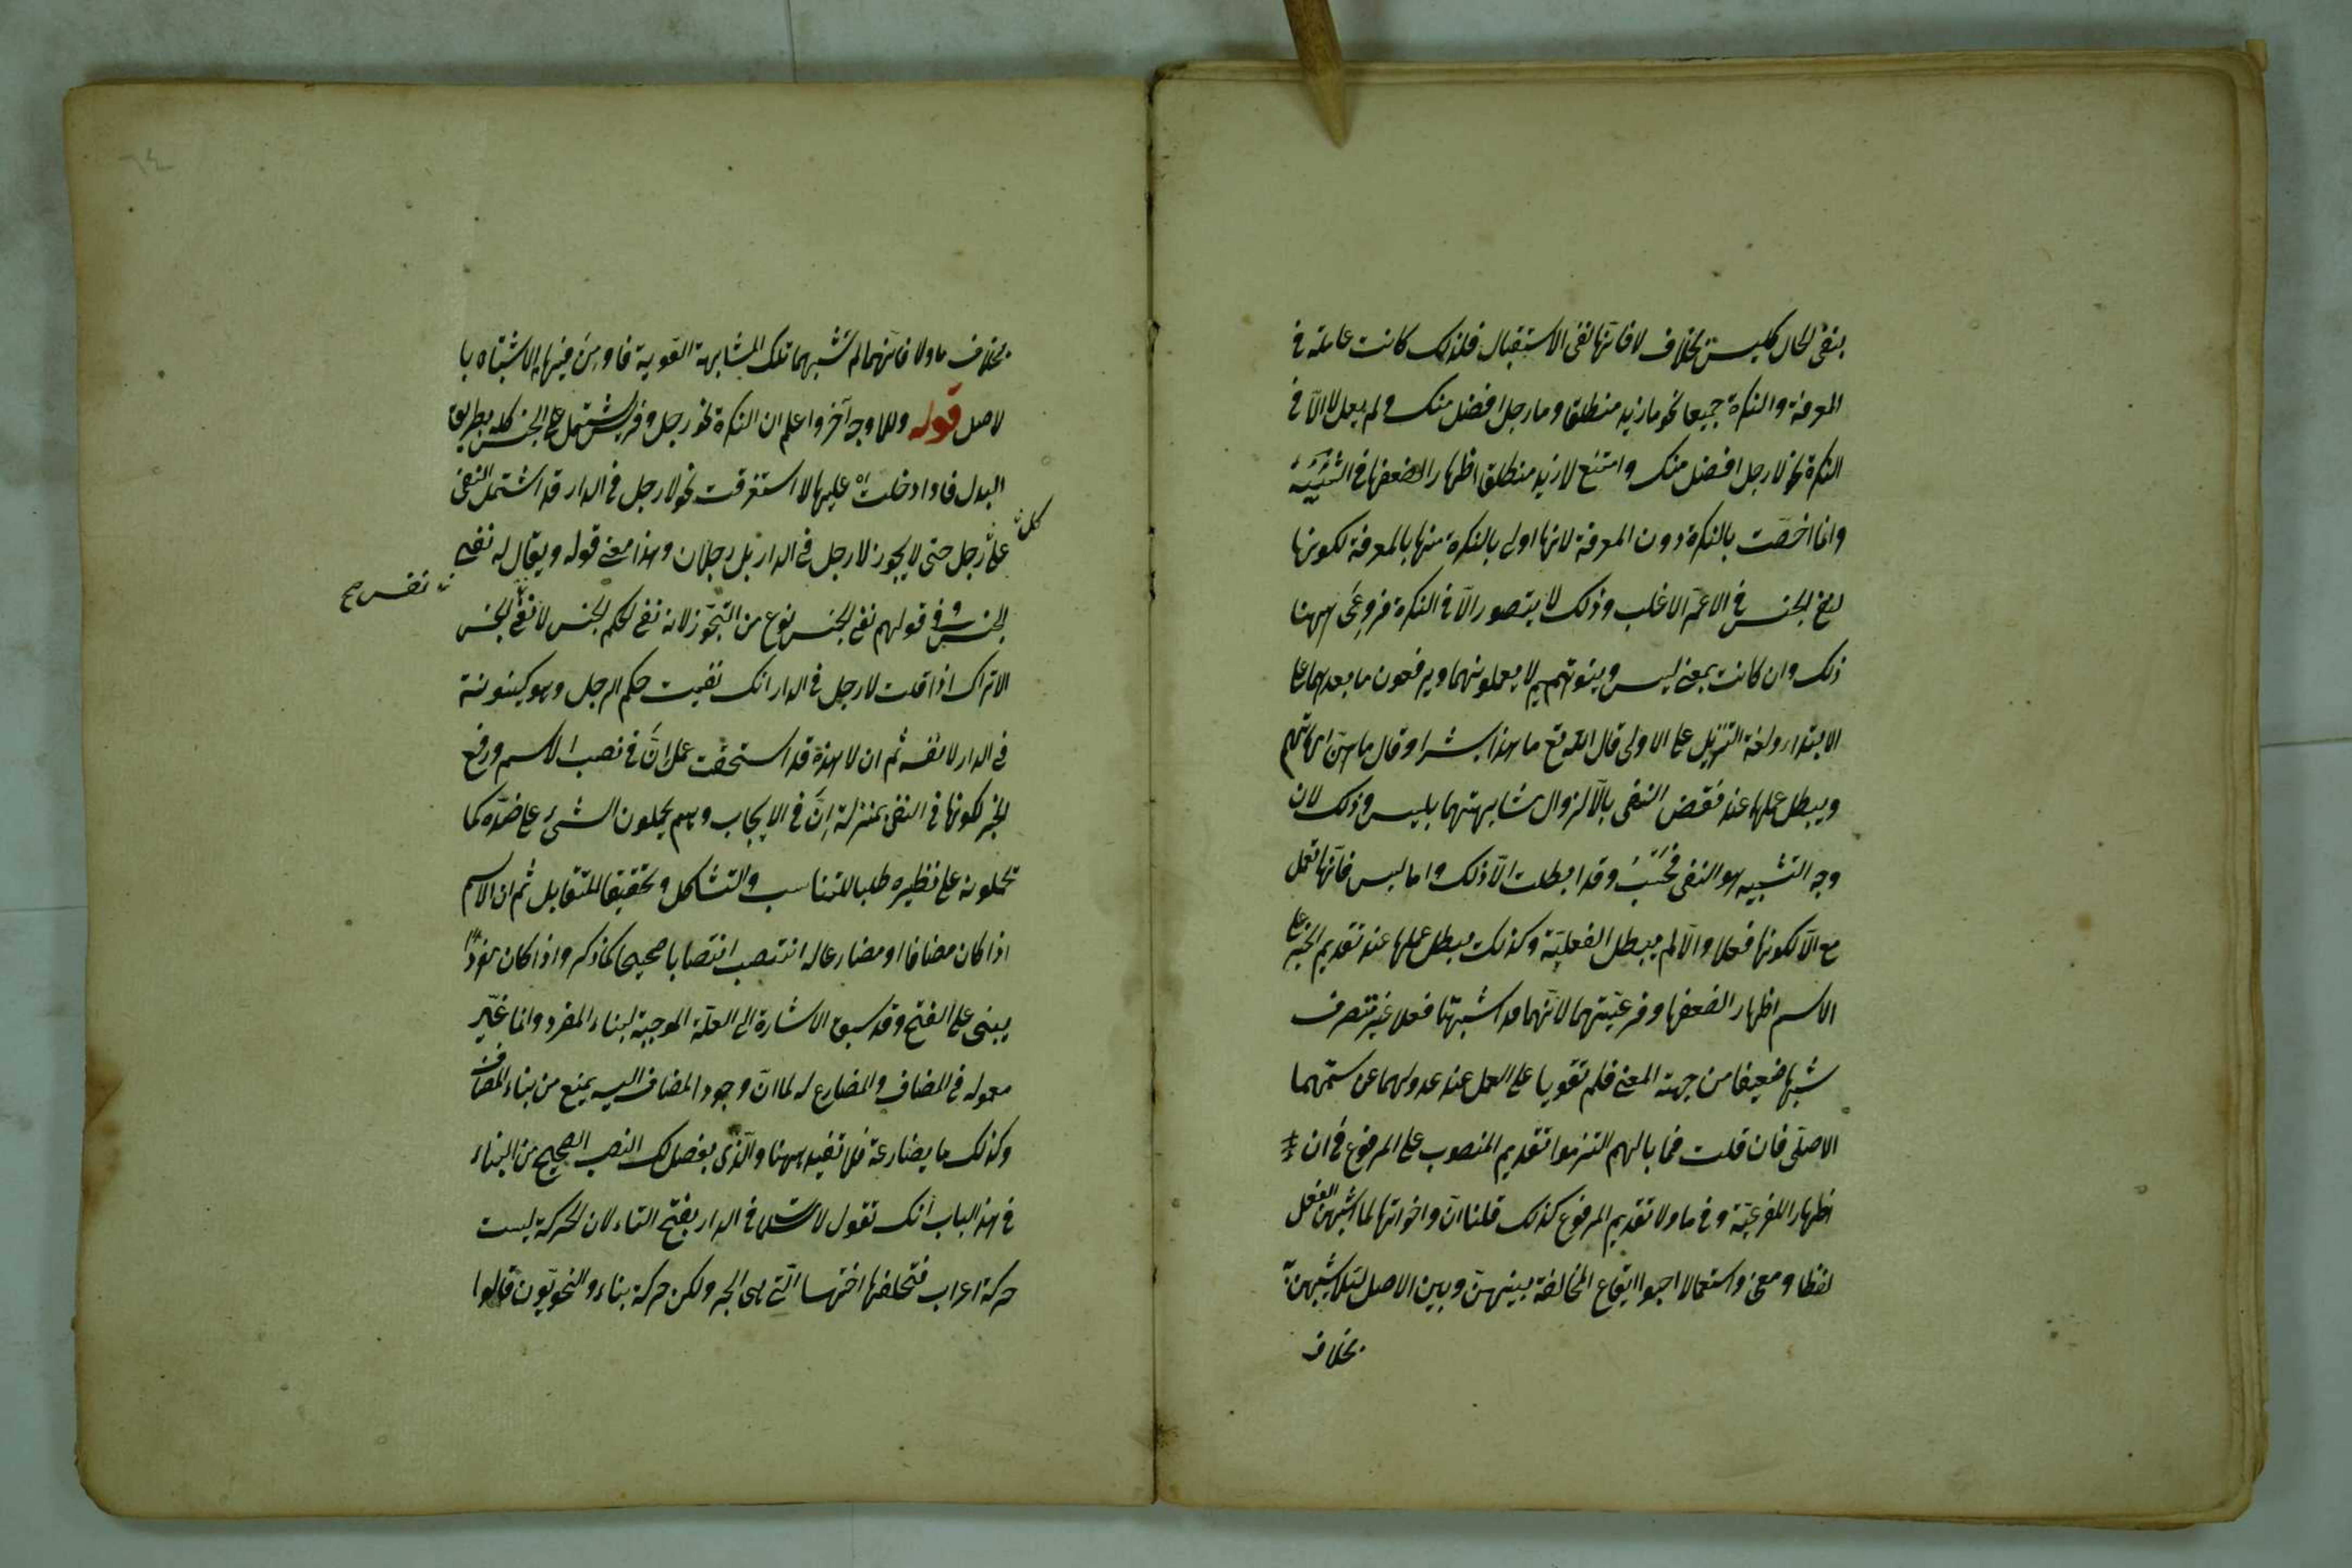 ينفى الحال كليس بخلاف لا فانها لنفى الاستقبال فلذلك كانت عاملة فى
المعرفة والنكرة جميعا نحو ما زيد منطلق وما رجل افضل منك ولم يعمل لا الّا فى
النكرة نحو لا رجل افضل منك وامتنع لا زيد منطلق اظهارا لضعفها فى
وانما اختصّت بالنكرة دون المعرفة لانها اولى بالنكرة منها بالمعرفة لكونها
لنفى الجنس فى الاعمّ الاغلب وذلك لا يتصور الّا فى النكرة فروعى ههنا
ذلك وان كانت بمعنى ليس وبنو تميم لا يعملونهما ويرفعون ما بعدهما على
الابتداء ولغة التنزيل على الاولى قال الله تع ما هذا بشرا وقال ما هنّ امهاتهم
ويبطل عملها عند نقض النفى بالّا لزوال مشابهتهما بليس وذلك لان
وجه التشبيه هو النفى فحسب وقد ابطلت الّا ذلك واما ليس فانّها تعمل
مع الّا لكونها فعلا والّا لم يبطل الفعليّة وكذلك يبطل عملها عند تقديم الخبر على
الاسم اظهارا لضعفها وفرعيّتهما لانّهما قد اشبهتا فعلا غير متصرف
شبها ضعيفا من جهة المعنى فلم تقويا على العمل عند عدولهما عن سمتهما
الاصلى فان قلت فما بالهم التزموا تقديم المنصوب على المرفوع فى ان
اظهارا للفرعيّة وفى ما ولا تقديم المرفوع كذلك قلنا انّ واخواتها لما اشبهن الفعل
لفظا ومعنى واستعمالا اجبوا ايقاع المخالفة بينهنّ وبين الاصل لئلا يشتبهن
بخلاف
بخلاف ما ولا فانهما لم تشبهما تلك المشابهة القوية فاومن فيها الاشتباه با
لاصل قوله وللا وجه آخر واعلم ان النكرة نحو رجل وفرس يشتمل على الجنس كله بطريق
البدل فاذا دخلت عليها لا استغرقت نحو لا رجل فى الدار قد اشتمل النفى
على كل رجل حتى لا يجوز لا رجل فى الدار بل رجلان وهذا معنى قوله ويقال له نفى
الجنس وفى قولهم نفى الجنس نوع من التجوّز لانه نفى لحكم الجنس لا نفى الجنس
نفس صح
الا تراك اذا قلت لا رجل فى الدار انك نفيت حكم الرجل وهو كينونته
فى الدار لا نفسه ثم ان لا هذه قد استحقت عمل انَّ فى نصب الاسم ورفع
الخبر لكونها فى النفى بمنزلة انَّ فى الايجاب وهم يحملون الشىء على ضدّه كما
تحملونه على نظيره طلبا للتناسب والتشاكل وتحقيقا للتقابل ثم ان الاسم
اذا كان مضافا او مضارعا له انتصب انتصابا صحيحا كما ذكر واذا كان مفردا
يبنى على الفتح وقد سبق الاشارة الى العلّة الموجبة لبناء المفرد وانما غيّر
معموله فى المضاف والمضارع له لما انّ وجود المضاف اليه يمنع من بناء المضاف
وكذلك ما يضارعه فلا تفيده ههنا والّذى يفضل لك النصب الصحيح من البناء
فى هذا الباب انك تقول لا مسلمات فى الدار بفتح التاء لان الحركة ليست
حركة اعراب فتخلفها اختها الّتى هى الجر ولكن حركة بناء والنحويّون قالوا